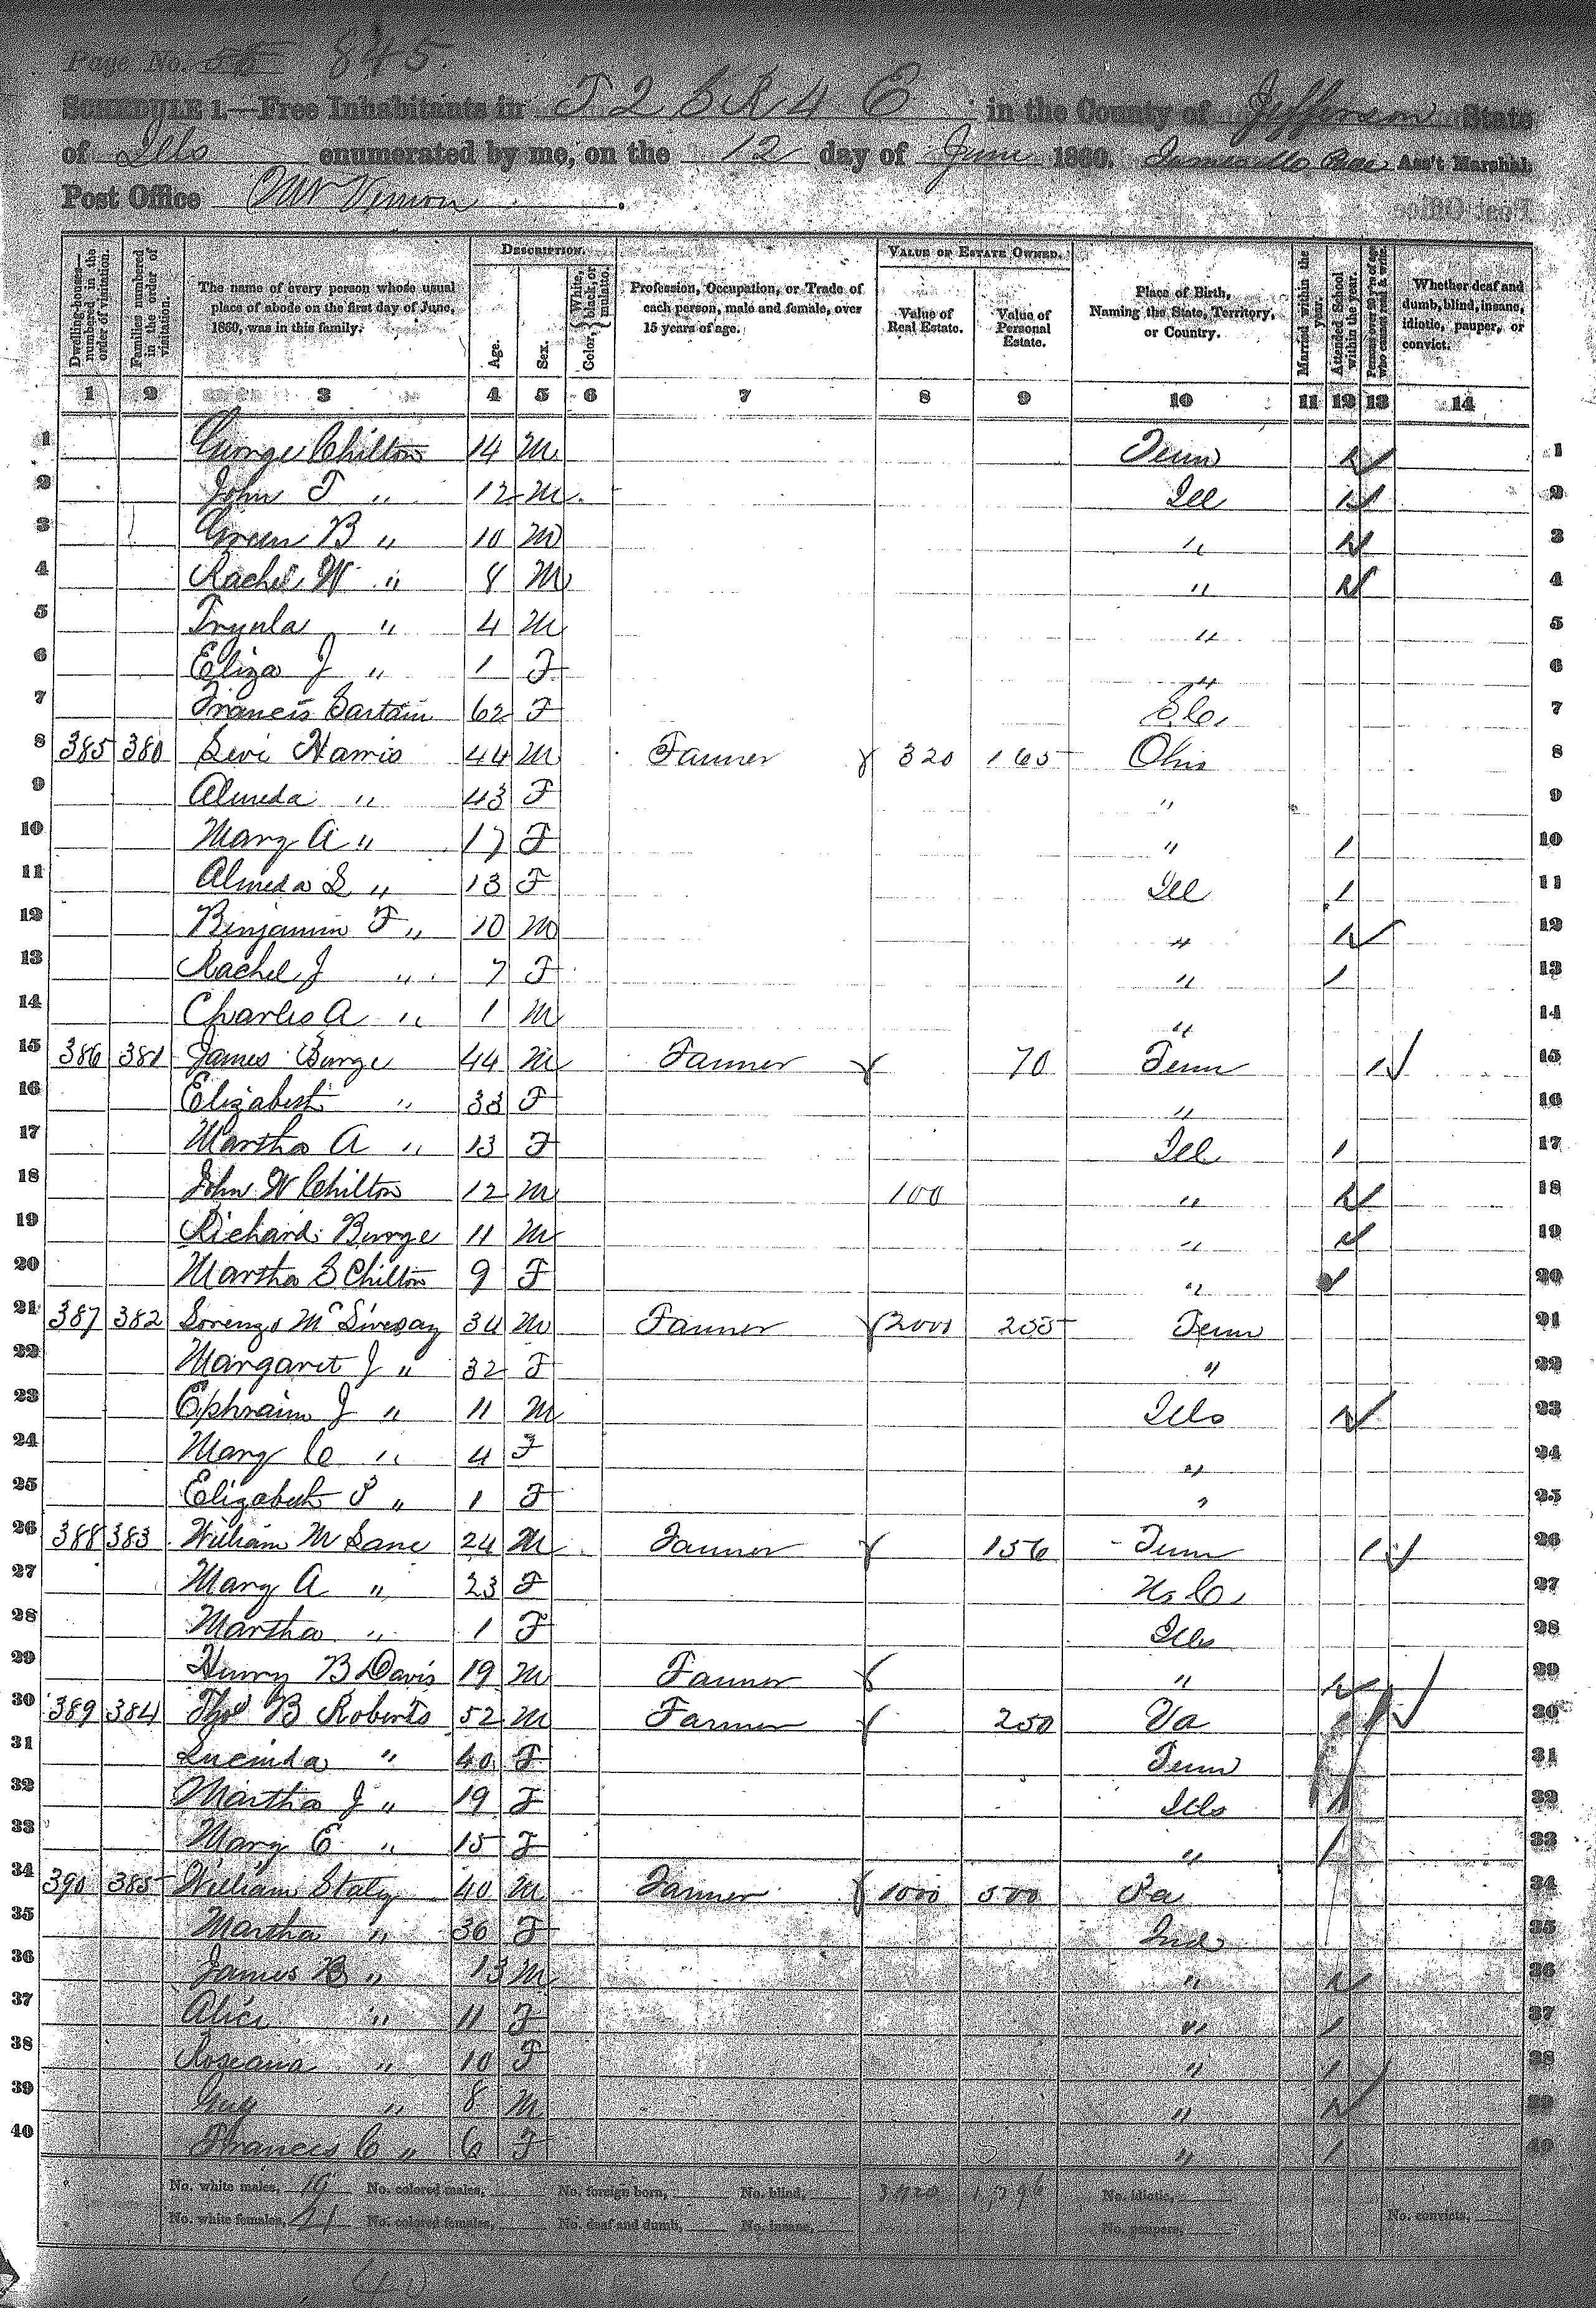 Page No. 56 845.
SCHEDULE 1.—Free Inhabitants in T 2 S R 4 E in the County of Jefferson State
of Ills enumerated by me, on the 12 day of June 1860. Ass't Marshal.
Post Office Mt Vernon
DESCRIPTION. VALUE OF ESTATE OWNED.
Dwelling-houses—numbered in the order of visitation. Families numbered in the order of visitation. The name of every person whose usual place of abode on the first day of June, 1860, was in this family. Age. Sex. Color, {White, black, or mulatto. Profession, Occupation, or Trade of each person, male and female, over 15 years of age. Value of Real Estate. Value of Personal Estate. Place of Birth, Naming the State, Territory, or Country. Married within the year. Attended School within the year. Persons over 20 y'rs of age who cannot read & write. Whether deaf and dumb, blind, insane, idiotic, pauper, or convict.
1 2 3 4 5 6 7 8 9 10 11 12 13 14
1 George Chilton 14 M Tenn 1 1
2 John T " 12 M Ill 1 2
3 Green B " 10 M " 1 3
4 Rachel W " 8 M " 1 4
5 " 4 M " 5
6 Eliza J " 1 F " 6
7 Francis Sartain 62 F S.C. 7
8 385 380 Levi Harris 44 M Farmer 320 165 Ohio 8
9 Almeda " 43 F " 9
10 Mary A " 17 F " 1 10
11 Almeda L " 13 F Ill 1 11
12 Benjamin F " 10 M " 1 12
13 Rachel J " 7 F " 1 13
14 Charles A " 1 M " 14
15 386 381 James Burge 44 M Farmer 70 Tenn 1 15
16 Elizabeth " 33 F " 16
17 Martha A " 13 F Ill 1 17
18 John W Chilton 12 M 100 " 1 18
19 Richard Burge 11 M " 1 19
20 Martha S Chilton 9 F " 1 20
21 387 382 Lorenzo McLivesay 34 M Farmer 2000 255 Tenn 21
22 Margaret J " 32 F " 22
23 Ephraim J " 11 M Ills 1 23
24 Mary C " 4 F " 24
25 Elizabeth P " 1 F " 25
26 388 383 William M Lane 24 M Farmer 156 Tenn 1 26
27 Mary A " 23 F N.C. 27
28 Martha " 1 F Ills 28
29 Henry B Davis 19 M Farmer " 1 29
30 389 384 Thos B Roberts 52 M Farmer 250 Va 1 30
31 Lucinda " 40 F Tenn 31
32 Martha J " 19 F Ills 1 32
33 Mary E " 15 F " 1 33
34 390 385 William Staley 40 M Farmer 1000 500 Pa 34
35 Martha " 36 F Ind 35
36 James B " 13 M " 1 36
37 Alice " 11 F " 1 37
38 Roseana " 10 F " 1 38
39 " 8 M " 1 39
40 Frances C " 6 F " 1 40
No. white males, 19 No. colored males, No. foreign born, No. blind, No. idiotic,
No. white females, 21 No. colored females, No. deaf and dumb, No. insane, No. paupers, No. convicts,